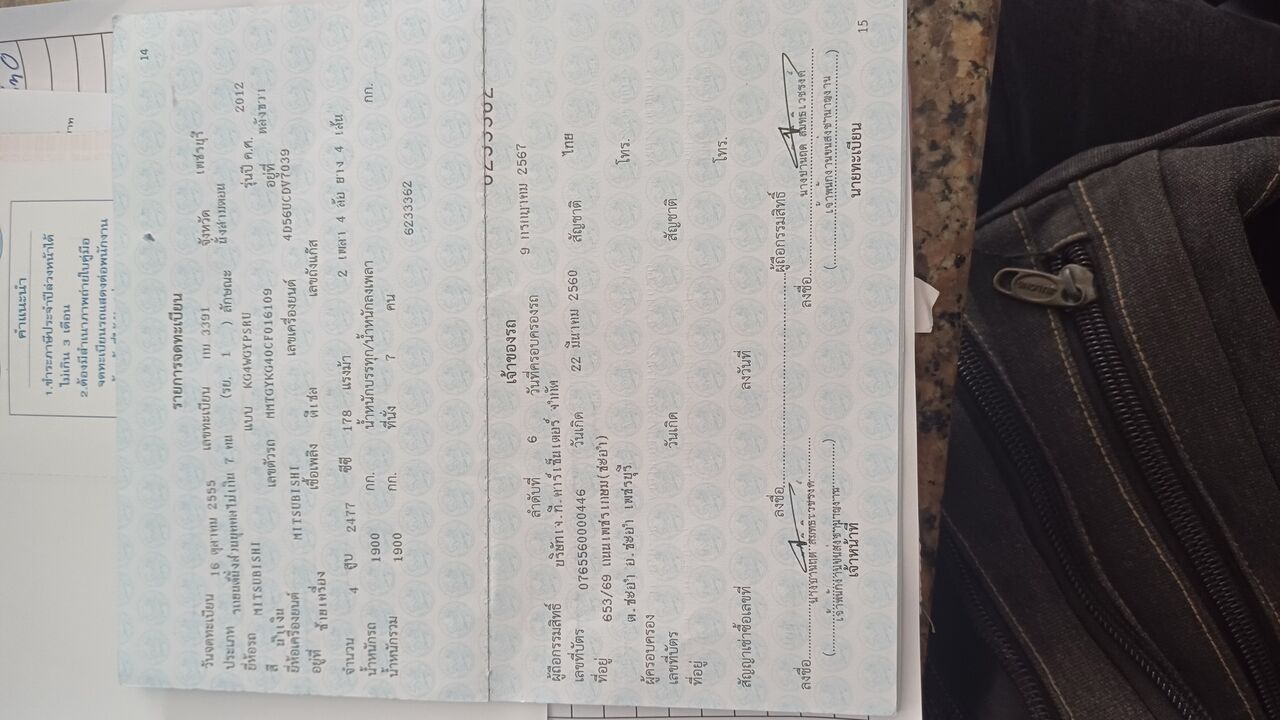 คำแนะนำ
1.ชำระภาษีประจำปีล่วงหน้าได้
ไม่เกิน 3 เดือน
2.ต้องมีสำเนาภาพถ่ายใบคู่มือ
จดทะเบียนรถแสดงต่อพนักงาน
14
รายการจดทะเบียน
วันจดทะเบียน 16 ตุลาคม 2555 เลขทะเบียน กม 3391 จังหวัด เพชรบุรี
ประเภท รถยนต์นั่งส่วนบุคคลไม่เกิน 7 คน (รย. 1 ) ลักษณะ นั่งสามตอน
ยี่ห้อรถ MITSUBISHI แบบ KG4WGYPSRU รุ่นปี ค.ศ. 2012
สี น้ำเงิน เลขตัวรถ MMTGYKG40CF016109 อยู่ที่ หลังขวา
ยี่ห้อเครื่องยนต์ MITSUBISHI เลขเครื่องยนต์ 4D56UCDV7039
อยู่ที่ ซ้ายเครื่อง เชื้อเพลิง ดีเซล เลขถังแก๊ส
จำนวน 4 สูบ 2477 ซีซี 178 แรงม้า 2 เพลา 4 ล้อ ยาง 4 เส้น
น้ำหนักรถ 1900 กก. น้ำหนักบรรทุก/น้ำหนักลงเพลา กก.
น้ำหนักรวม 1900 กก. ที่นั่ง 7 คน
6233362
6233362
เจ้าของรถ
ลำดับที่ 6 วันที่ครอบครองรถ 9 กรกฎาคม 2567
ผู้ถือกรรมสิทธิ์ บริษัทเจ.ที.คาร์เซ็นเตอร์ จำกัด
เลขที่บัตร 0765560000446 วันเกิด 22 มีนาคม 2560 สัญชาติ ไทย
ที่อยู่ 653/69 ถนนเพชรเกษม(ชะอำ)
ต.ชะอำ อ.ชะอำ เพชรบุรี โทร.
ผู้ครอบครอง
เลขที่บัตร วันเกิด สัญชาติ
ที่อยู่ โทร.
สัญญาเช่าซื้อเลขที่ ลงวันที่
ลงชื่อ ผู้ถือกรรมสิทธิ์
ลงชื่อ ลงชื่อ
(เจ้าพนักงานขนส่งชำนาญงาน) (เจ้าพนักงานขนส่งชำนาญงาน)
เจ้าหน้าที่ นายทะเบียน
15